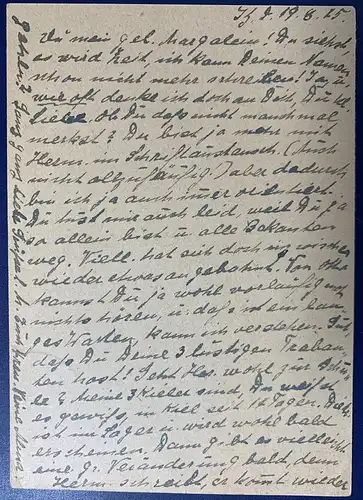 d. 19.8.45.
Du mein gel. Margalein! Du siehst,
es wird Zeit, ich kann Deinen Namen
schon nicht mehr schreiben! Ja, u.
wie oft denke ich doch an Dich, Du
Liebe. Ob Du das nicht manchmal
merkst? Du bist ja mehr mit
Herm. im Schriftaustausch. (Auch
nicht allzuhäufig) aber dadurch
bin ich ja auch immer orientiert.
Du tust mir auch leid, weil Du ja
so allein bist u. alle Bekannten
weg. Viell. hat sich doch inzwischen
wieder etwas angebahnt. Von
kannst Du ja wohl vorläufig nur
nichts hören, u. daß ist ein ban-
ges Warten, kann ich verstehen. Gut,
daß Du Deine 3 lustigen Traban-
ten hast! Geht wohl zur Schu-
le? meine 3 Kieler sind, Du weißt
es gewiß, in Kiel seit 14 Tagen.
ist im Lager u. wird wohl bald
erscheinen. Dann gibt es vielleicht
eine g. Veränderung bald, denn
Herm. schreibt, er kommt wieder
Ganz ganz liebe Grüße